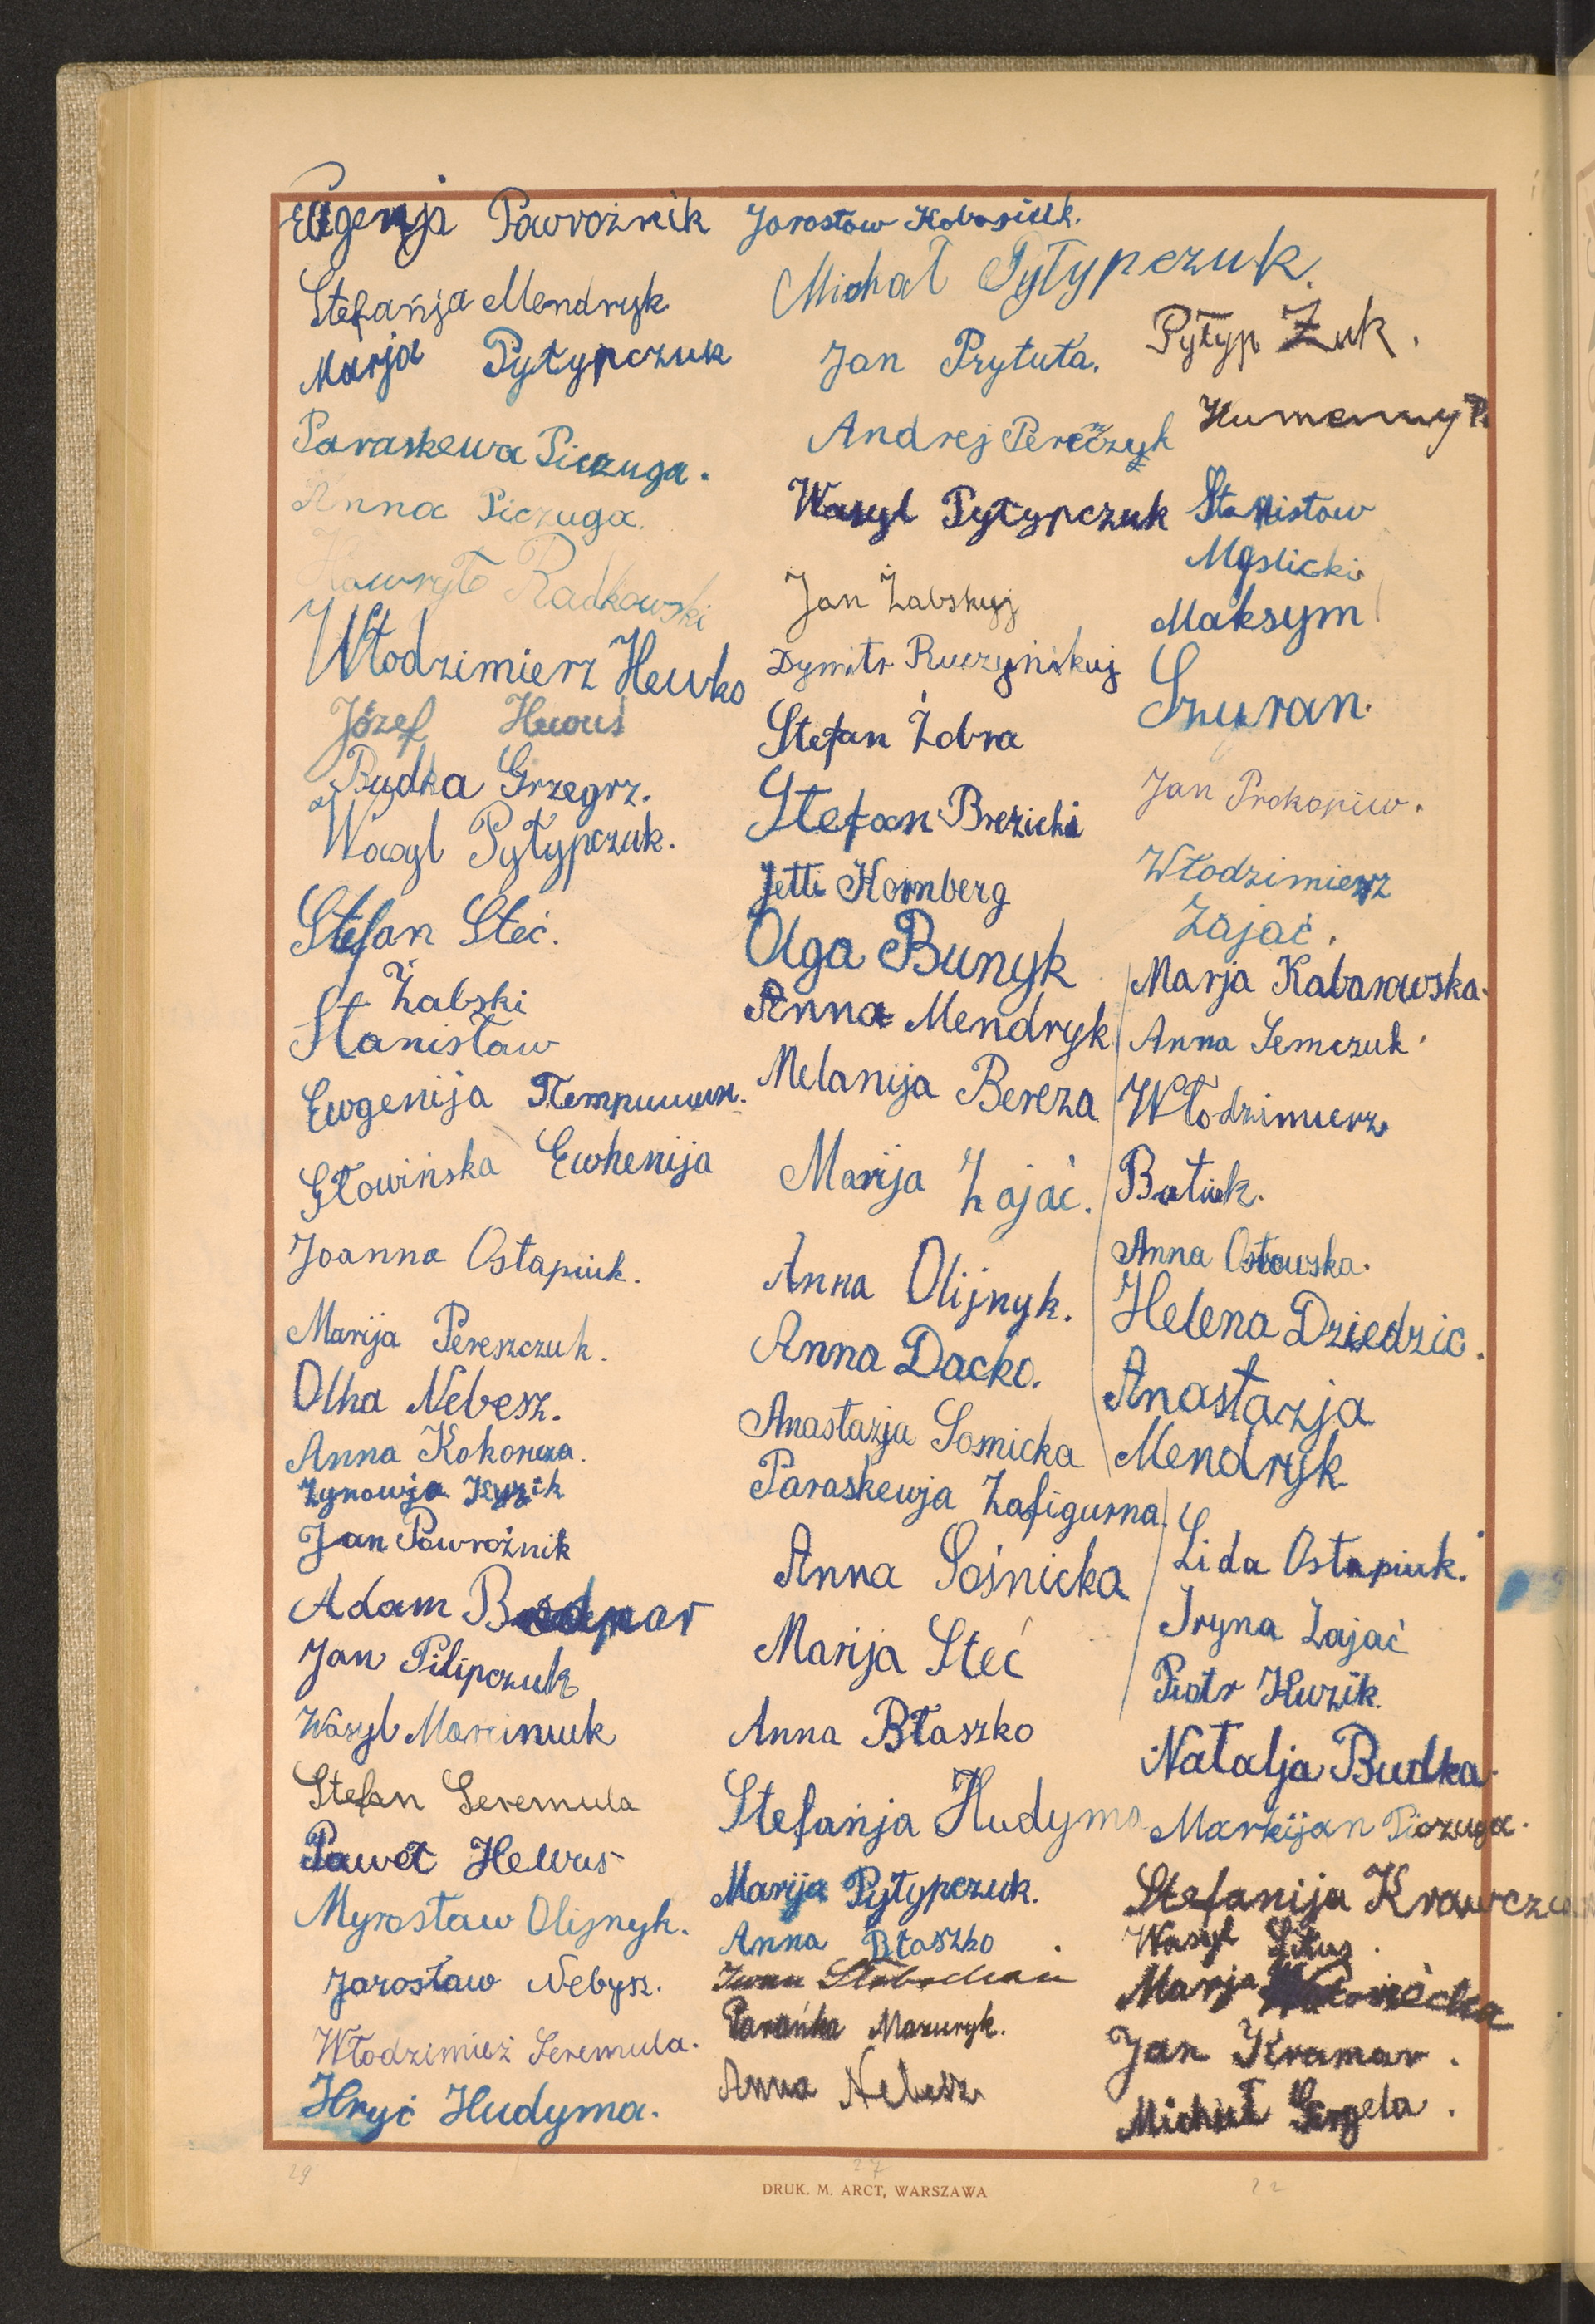 Eugenja Pawroźnik
Stefańja Mendryk
Marja Pyłypczuk
Paraskewa Piczuga.
Anna Piczuga.
Hawryło Radkowski
Włodzimierz Hewko
Józef Hewus
Budka Grzegrz.
Wasyl Pyłypczuk.
Stefan Steć.
Żabski
Stanisław
Ewgenija Петришин.
Głowińska Ewhenija
Joanna Ostapiuk.
Marija Pereszczuk.
Olha Nebesz.
Anna Kokorura.
Zynowja
Jan Pawroźnik
Adam
Jan Pilipczuk
Wasyl Marciniuk
Stefan Seremula
Paweł Hewus
Myrosław Olijnyk.
Jarosław Nebysz.
Włodzimież Seremula.
Hryć Hudyma.
Jarosław Kobasiuk.
Michał Pyłypczuk.
Jan Prytuła.
Andrej
Wasyl Pyłypczuk
Jan Żabskyj
Dymitr Ruczyńskuj
Stefan Żobra
Stefan Brezicki
Jetti Kornberg
Olga Bunyk
Anna Mendryk
Melanija Bereza
Marija Zajać.
Anna Olijnyk.
Anna Dacko.
Anastazja Sosnicka
Paraskewja Zafigurna.
Anna Sośnicka
Marija Steć
Anna Błaszko
Stefańja Hudyma
Marija Pyłypczuk.
Anna Błaszko
Iwan
Parańka Mazuryk.
Anna Nebesz
Pyłyp Żuk.
Humennyj P.
Stanisław
Myslicki
Maksym
Szuran.
Jan Prokopiw.
Włodzimierz
Zając.
Marja Kabarowska.
Anna Semczuk.
Włodzimierz
Batiuk.
Anna Osławska.
Helena Dziedzic.
Anastazja
Mendryk
Lida Ostapiuk.
Iryna Zajać
Piotr Huzik.
Natalja Budka.
Markijan Piczuga.
Stefanija Krawczuk
Wasyl
Marja
Jan Kramar.
Michał
29 27 22
DRUK. M. ARCT, WARSZAWA